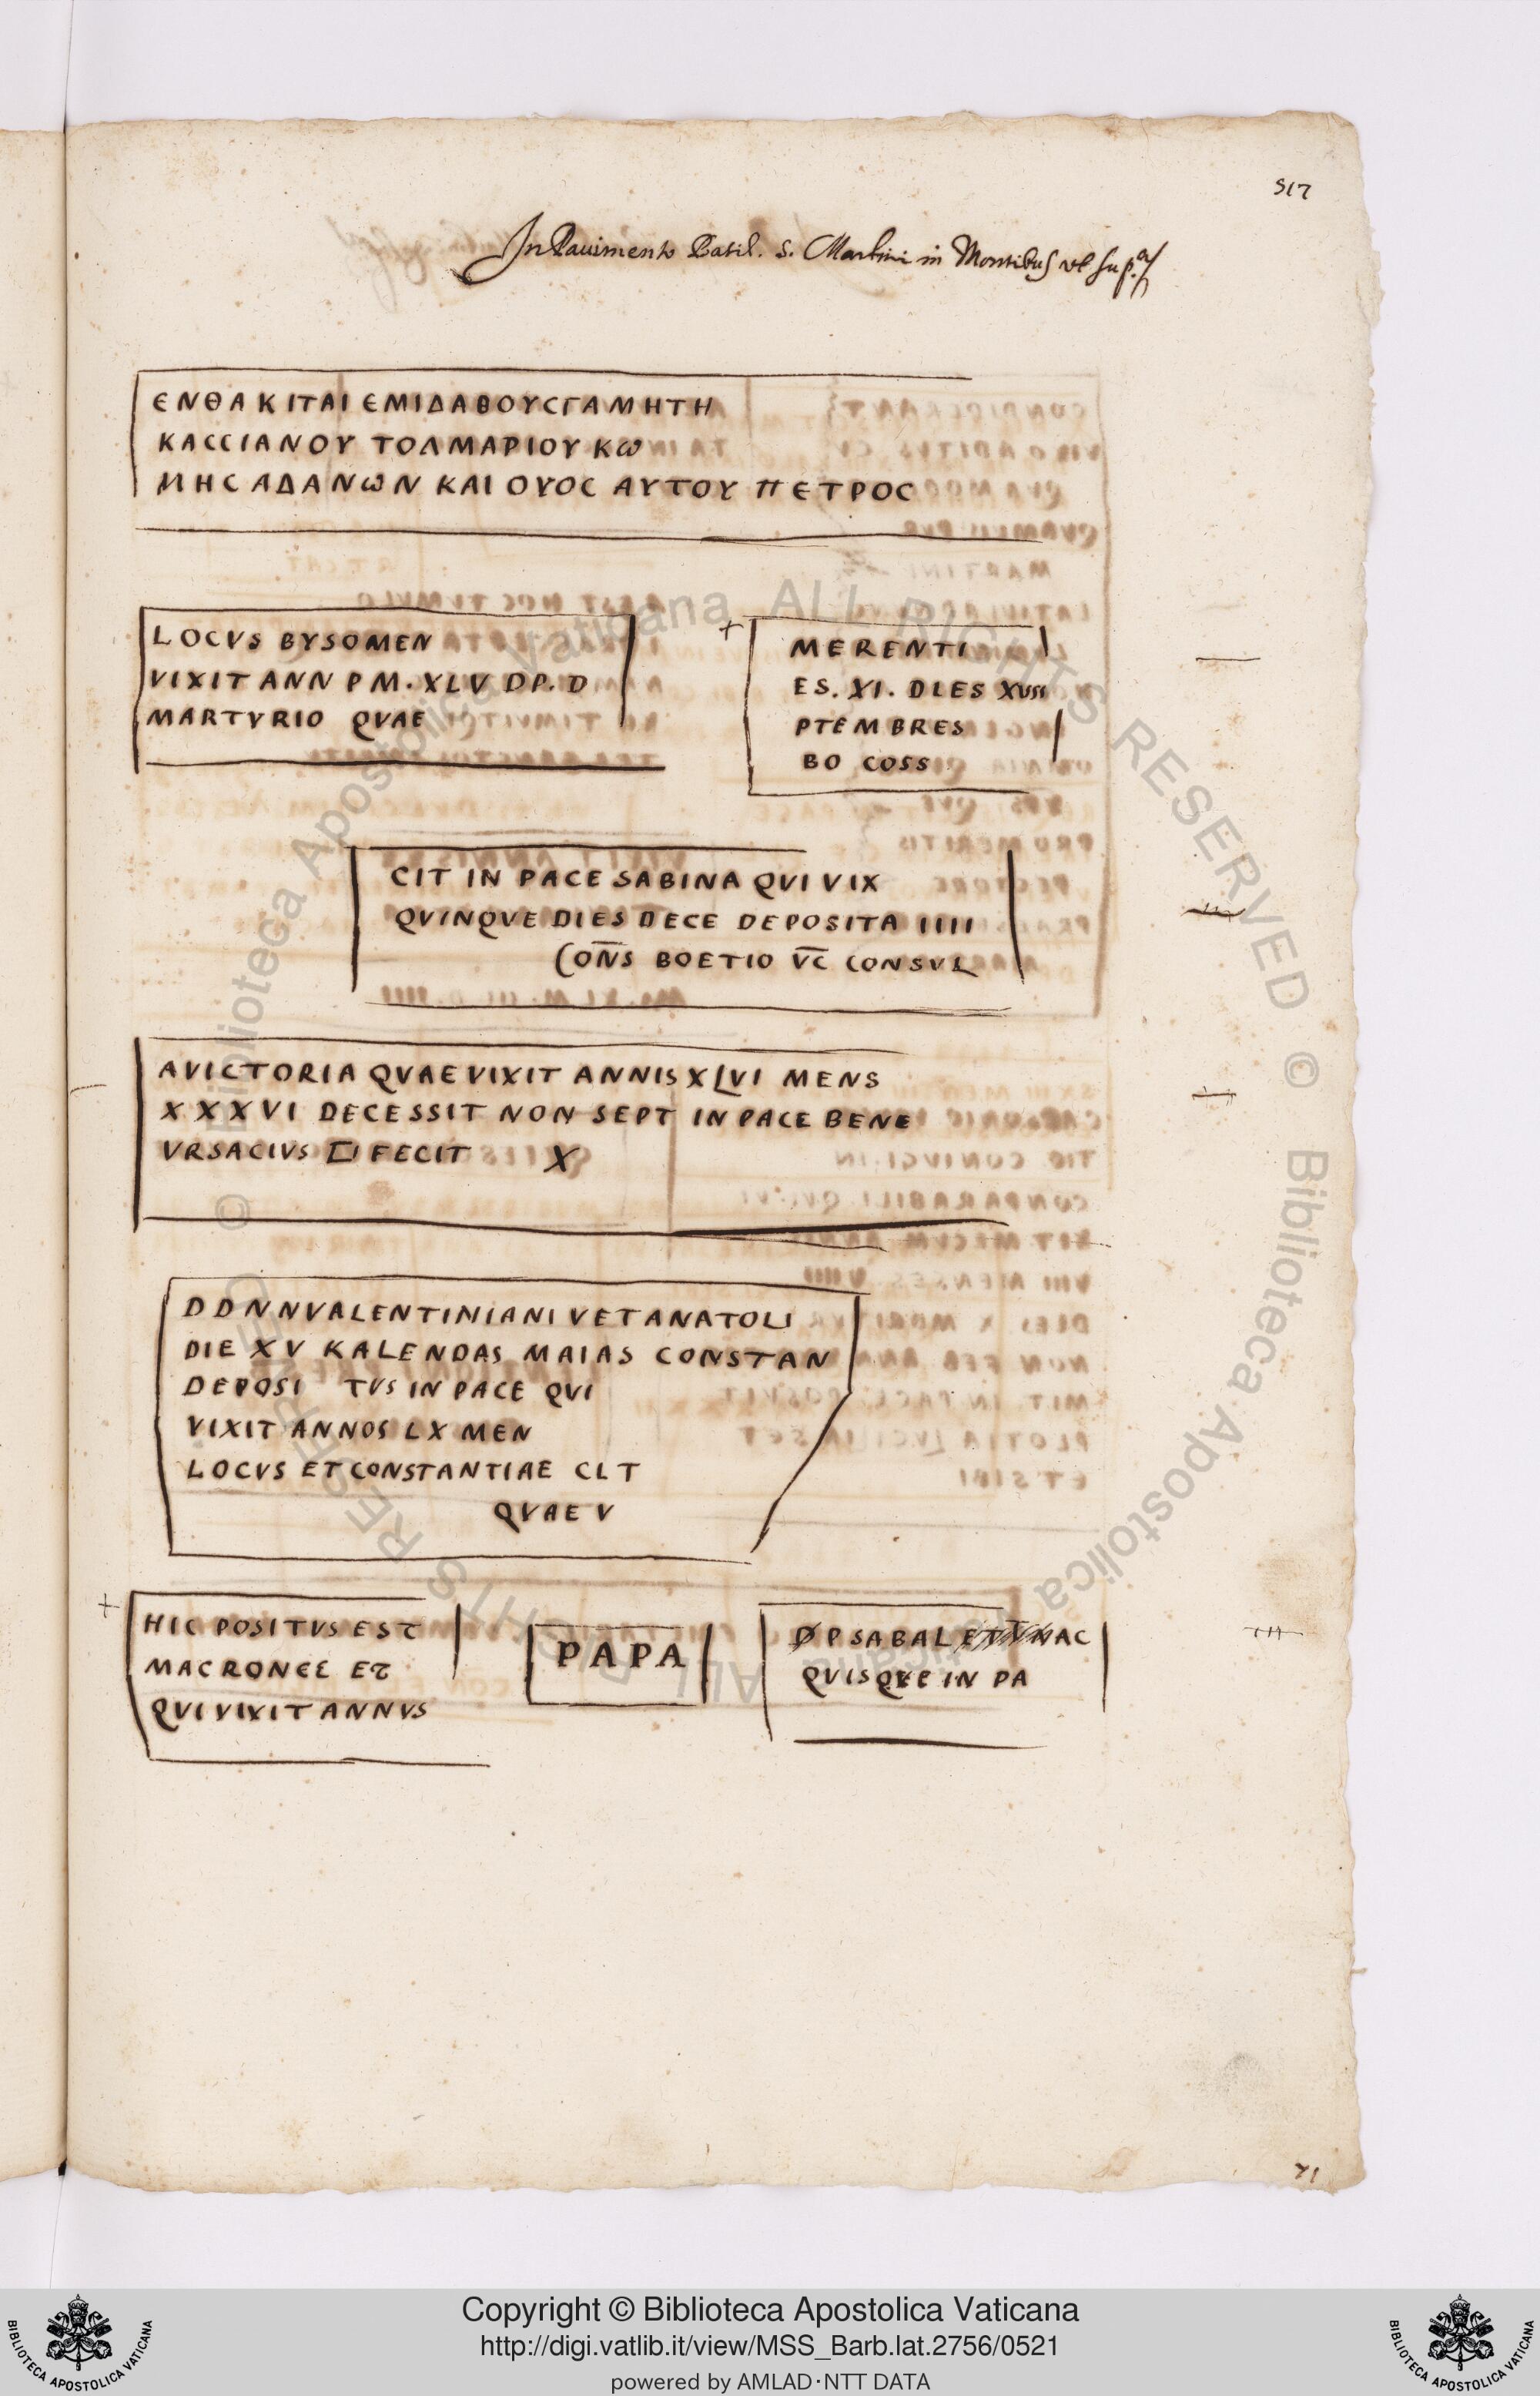 517
In Pauimento Basil. S. Martini in Montibus vt sup.ª
ЄΝΘΑ ΚΙΤΑΙ ЄΜΙΔΑΒΟΥϹΓΑΜΗΤΗ
ΚΑϹϹΙΑΝΟΥ ΤΟΛΜΑΡΙΟΥ Κω
ΜΗϹ ΑΔΑΝωΝ ΚΑΙ ΟΥΟϹ ΑΥΤΟΥ ΠЄΤΡΟϹ
LOCVS BYSOMEN
VIXIT ANN P M . XLV DP. D
MARTYRIO QVAE
+
MERENTI
ES. XI. DIES XVII
PTEMBRES
BO COSS
CIT IN PACE SABINA QVI VIX
QVINQVE DIES DECE DEPOSITA IIII
CON̅S BOETIO V̅C CONSVL
AVICTORIA QVAE VIXIT ANNIS XLVI MENS
XXXVI DECESSIT NON SEPT IN PACE BENE
VRSACIVS □ FECIT X
D D N N VALENTINIANI V ET ANATOLI
DIE XV KALENDAS MAIAS CONSTAN
DEPOSI TVS IN PACE QVI
VIXIT ANNOS LX MEN
LOCVS ET CONSTANTIAE CLT
QVAE V
+
HIC POSITVS EST
MACRONEE ET
QVI VIXIT ANNVS
PAPA
ØP SABAL NAC
QVISQVE IN PA
71
© Biblioteca Apostolica Vaticana ALL RIGHTS RESERVED © Biblioteca Apostolica Vaticana ALL RIGHTS RESERVED
BIBLIOTECA APOSTOLICA VATICANA
Copyright © Biblioteca Apostolica Vaticana
http://digi.vatlib.it/view/MSS_Barb.lat.2756/0521
powered by AMLAD·NTT DATA
BIBLIOTECA APOSTOLICA VATICANA